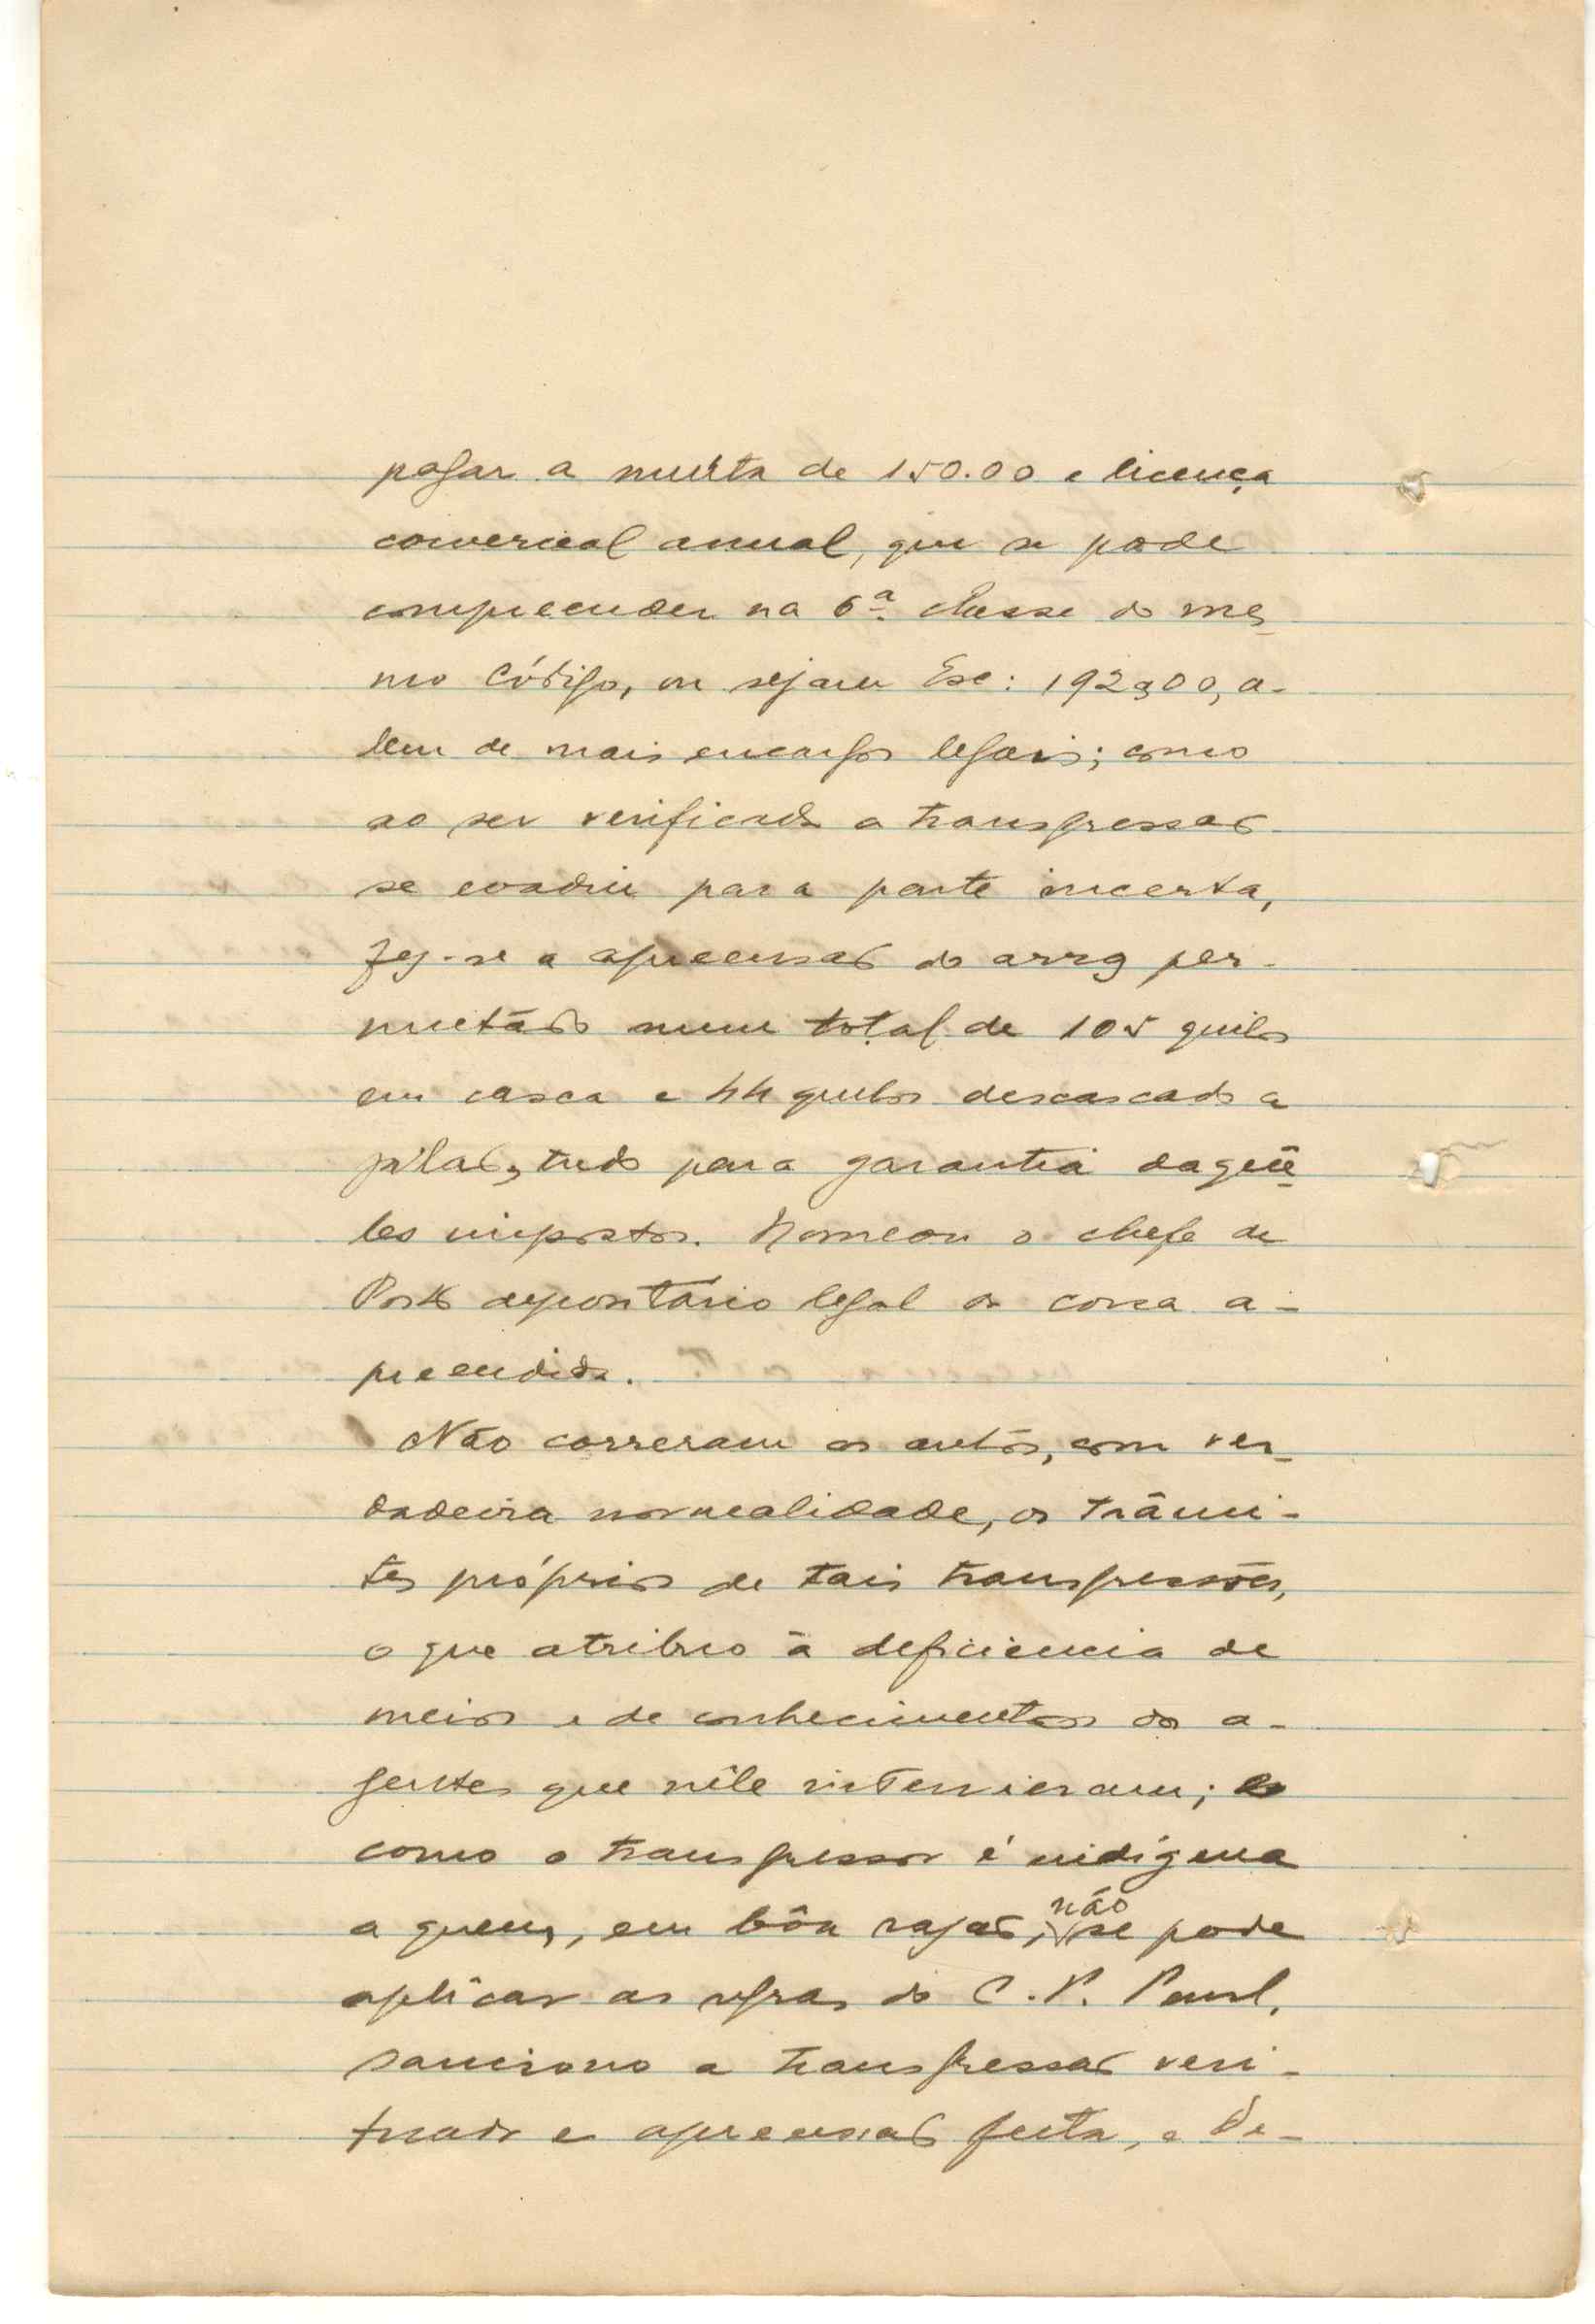 pagar a multa de 150.00 e licença
comercial anual, que se pode
compreender na 6ª classe do mes
mo Código, ou sejam Esc: 192,00, a-
lem de mais encargos legais; como
ao ser verificada a transgressão
se evadiu para parte incerta,
fez-se a apreensão do arroz per-
mutado num total de 105 quilos
em casca e 44 quilos descascado a
pilão, tudo para garantia daquê
les impostos. Nomeou o chefe de
Posto depositário legal da coisa a-
preendida.
Não correram os autos, com ver
dadeira normalidade, os trâmi-
tes próprios de tais transgressões,
o que atribuo à deficiencia de
meios e de conhecimentos dos a-
gentes que nêle intervieram; e
como o transgressor é indígena
a quem, em bôa razão, não se pode
aplicar as regras do C. P. Penal,
sanciono a transgressão veri-
ficada e apreensão feita, e De-